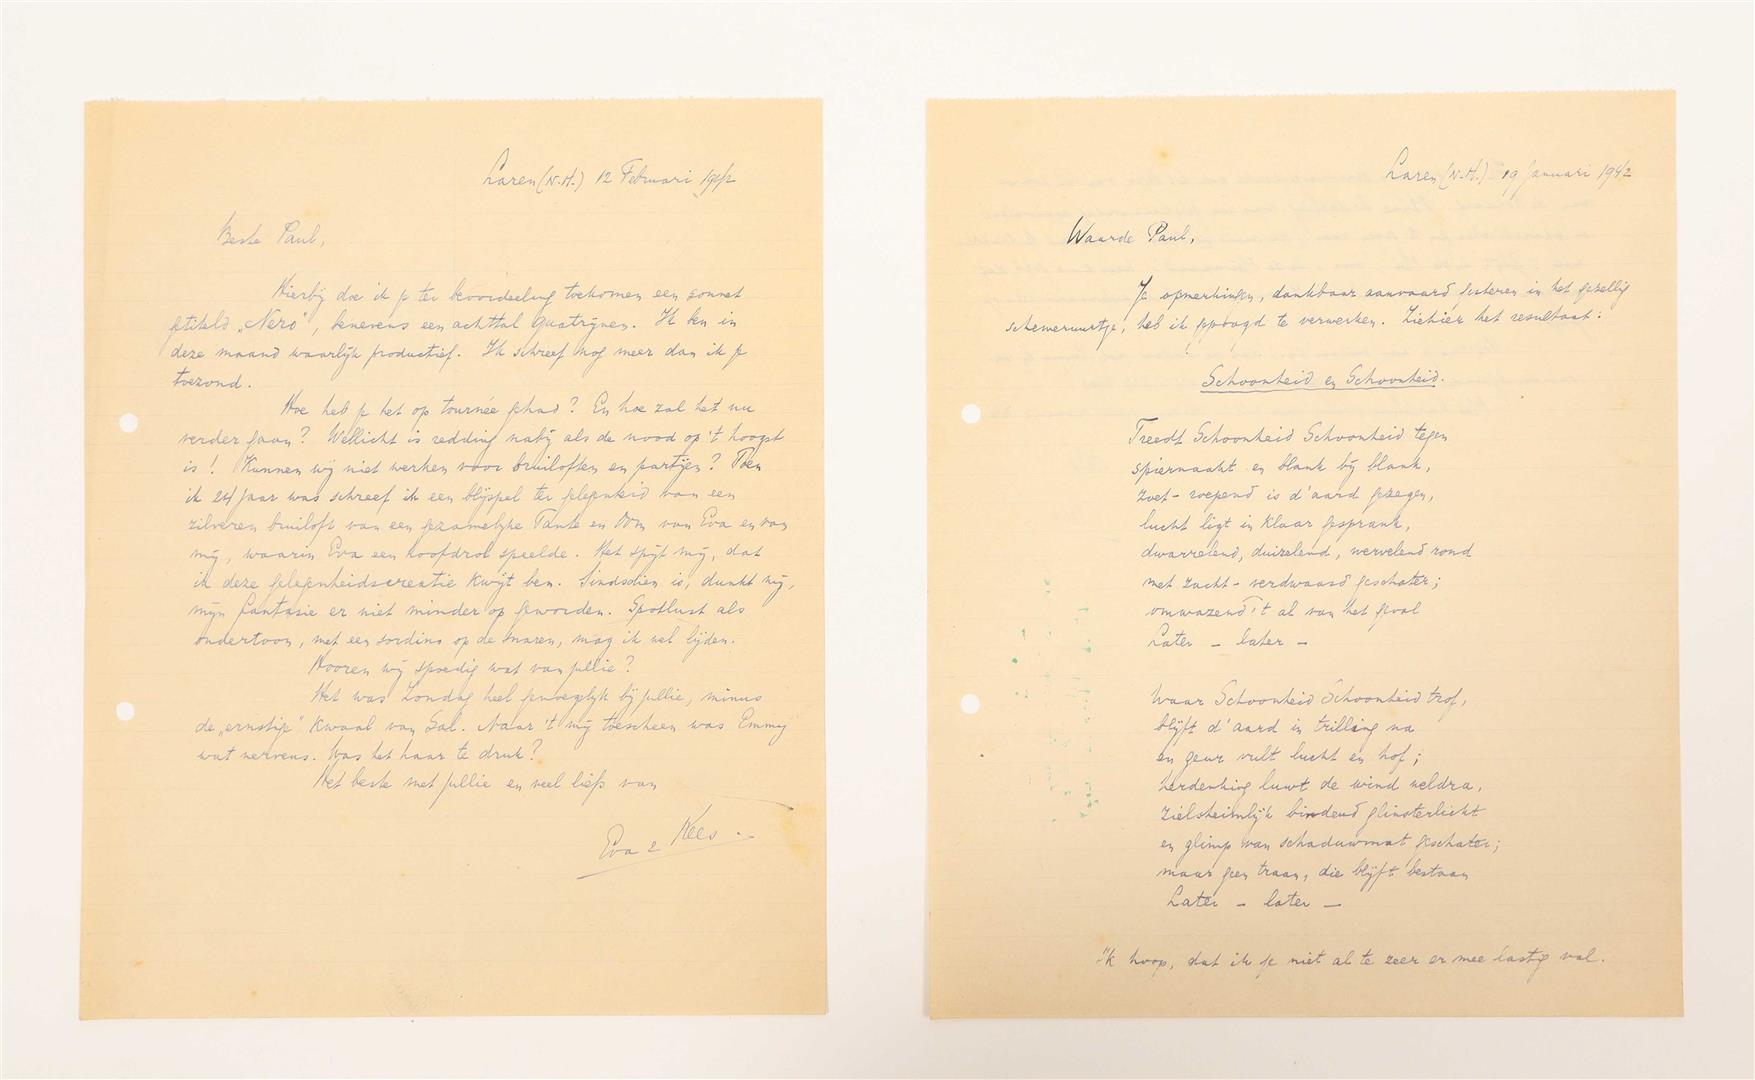 Laren (N.H.) 12 Februari 1942
Beste Paul,
Hierbij doe ik je ter beoordeeling toekomen een sonnet
getiteld „Nero", benevens een achttal quatrijnen. Ik ben in
deze maand waarlijk productief. Ik schreef nog meer dan ik je
toezond.
Hoe heb je het op tournée gehad? En hoe zal het nu
verder gaan? Wellicht is redding nabij als de nood op 't hoogst
is! Kunnen wij niet werken voor bruiloften en partijen? Toen
ik 24 jaar was schreef ik een blijspel ter gelegenheid van een
zilveren bruiloft van een gezamelijke Tante en Oom van Eva en van
mij, waarin Eva een hoofdrol speelde. Het spijt mij, dat
ik deze gelegenheidscreatie kwijt ben. Sindsdien is, dunkt mij,
mijn fantasie er niet minder op geworden. Spotlust als
ondertoon, met een sordino op de snaren, mag ik wel lijden.
Hooren wij spoedig wat van jullie?
Het was Zondag heel genoegelijk bij jullie, minus
de „ernstige" kwaal van Sal. Naar 't mij toescheen was Emmy
wat nerveus. Was het haar te druk?
Het beste met jullie en veel liefs van
Eva & Kees
Laren (N.H.) 19 Januari 1942
Waarde Paul,
Je opmerkingen, dankbaar aanvaard gisteren in het gezellig
schemeruurtje, heb ik gepoogd te verwerken. Ziehier het resultaat:
Schoonheid en Schoonheid.
Treedt Schoonheid Schoonheid tegen
spiernaakt en blank bij blank,
zoet-roepend is d'aard gezegen,
lucht ligt in klaar gesprank,
dwarrelend, duizelend, wervelend rond
met zacht-verdwaasd geschater;
omwazend 't al van het geval
Later – later –
Waar Schoonheid Schoonheid trof,
blijft d'aard in trilling na
en geur vult lucht en hof;
herdenking luwt de wind weldra,
zielsheimlijk bindend glinsterlicht
en glimp van schaduwmat geschater;
maar geen traan, die blijft bestaan
Later – later –
Ik hoop, dat ik je niet al te zeer er mee lastig val.